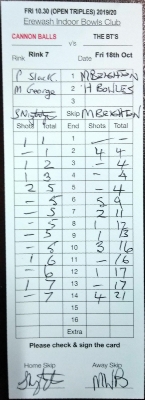 FRI 10.30 (OPEN TRIPLES) 2019/20
Erewash Indoor Bowls Club
CANNON BALLS v's THE BT'S
Rink Rink 7 Date Fri 18th Oct
P Slack. 1 M BEIGHTON
M George 2 H BOWLES
3
Skip M BEIGHTON
Shots Total End Shots Total
1 1 1 - -
- 1 2 4 4
1 2 3 - 4
1 3 4 - 4
2 5 5 - 4
- 5 6 5 9
- 5 7 2 11
- 5 8 1 12
- 5 9 1 13
- 5 10 3 16
1 6 11 - 16
- 6 12 1 17
1 7 13 - 17
- 7 14 4 21
15
16
Extra
Please check & sign the card
Home Skip Away Skip